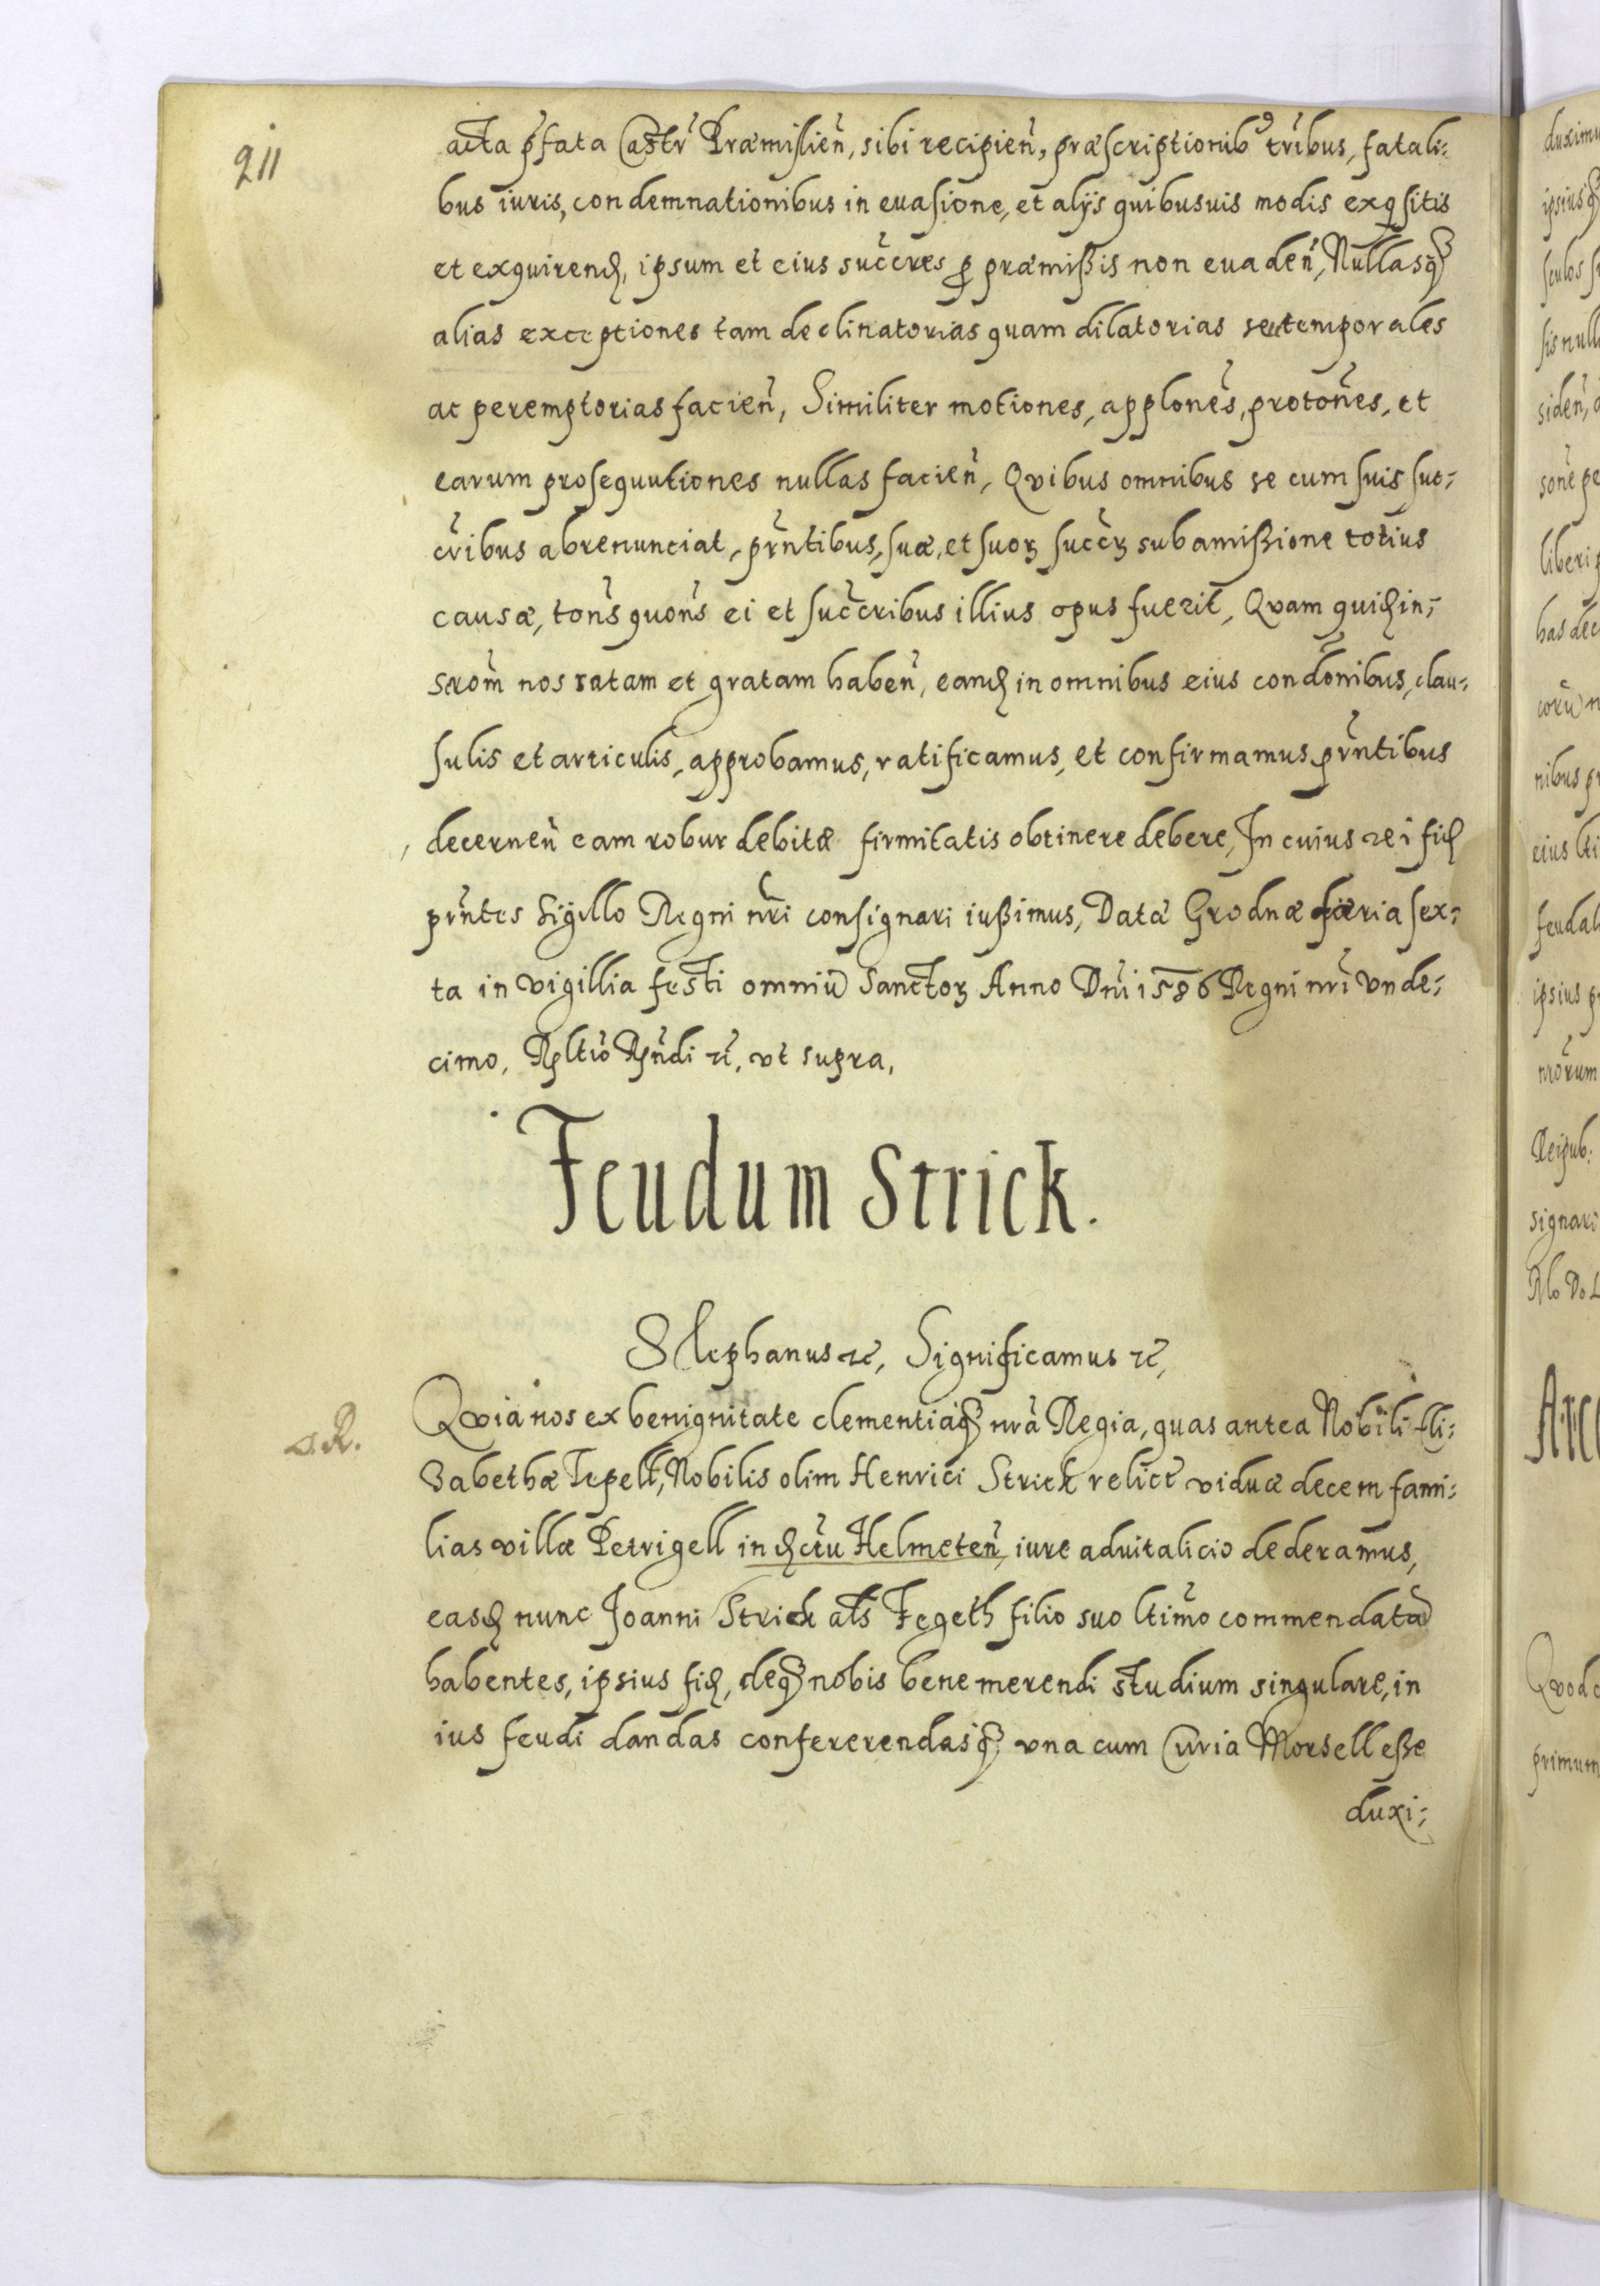 211
acta p̃fata Castrĩ Præmislieñ, sibi recipieñ, præscriptionibꝰ tr̃ibus, fatali-
bus iuris, condemnationibus in euasione, et alijs quibusuis modis exqsitis
et exquirenđ, ipsum et eius suc̃cres ꝓ præmißis non euadeñ, Nullasq̃
alias exceptiones tam declinatorias quam dilatorias seu temporales
ac peremptorias facieñ, Similiter motiones, applones̃, protones̃, et
earum prosequutiones nullas facieñ, Quibus omnibus se cum suis suc-
cr̃ibus abrenunciat, pr̃ntibus, suæ, et suoꝝ succꝝ̃ sub amißione totius
causæ, tons̃ quons̃ ei et suc̃cribus illius opus fuerit, Quam quiđ in-
scrom̃ nos ratam et gratam habeñ, eanđ in omnibus eius condõnibus, clau-
sulis et articulis, approbamus, ratificamus, et confirmamus pr̃ntibus
decerneñ eam robur debitæ firmitatis obtinere debere, In cuius rei fiđ
pr̃ntes Sigillo Regni nr̃i consignari iußimus, Datæ Grodnæ fæeria sex-
ta in vigillia festi omniũ Sanctoꝝ Anno Dñi 1586 Regni nr̃i vnde-
cimo, Rꝑltiõ Rñdi ꝛc̃, vt supra,
Feudum Strick.
Stephanus ꝛc, Significamus ꝛc,
s. R.
Quia nos ex benignitate clementiaq̃ nr̃a Regia, quas antea Nobili Eli-
zabethæ Tepell, Nobilis olim Henrici Strick relictæ viduæ decem fami-
lias villæ Petrigell in đctr̃u Helmeteñ, iure aduitalicio dederamus,
easđ nunc Joanni Strick als̃ Fegeth filio suo ltim̃o commendatã
habentes, ipsius fiđ, deq̃ nobis bene merendi studium singulare, in
ius feudi dandas confererendasq̃ vna cum Curia Morsell eße
duxi-